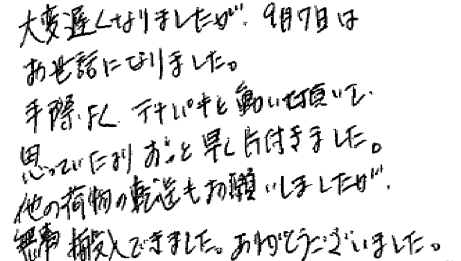 大変遅くなりましたが、9月7日は
お世話になりました。
手際よく、テキパキと動いて頂いて、
思っていたよりずっと早く片付きました。
他の荷物の転送もお願いしましたが、
無事搬入できました。ありがとうございました。